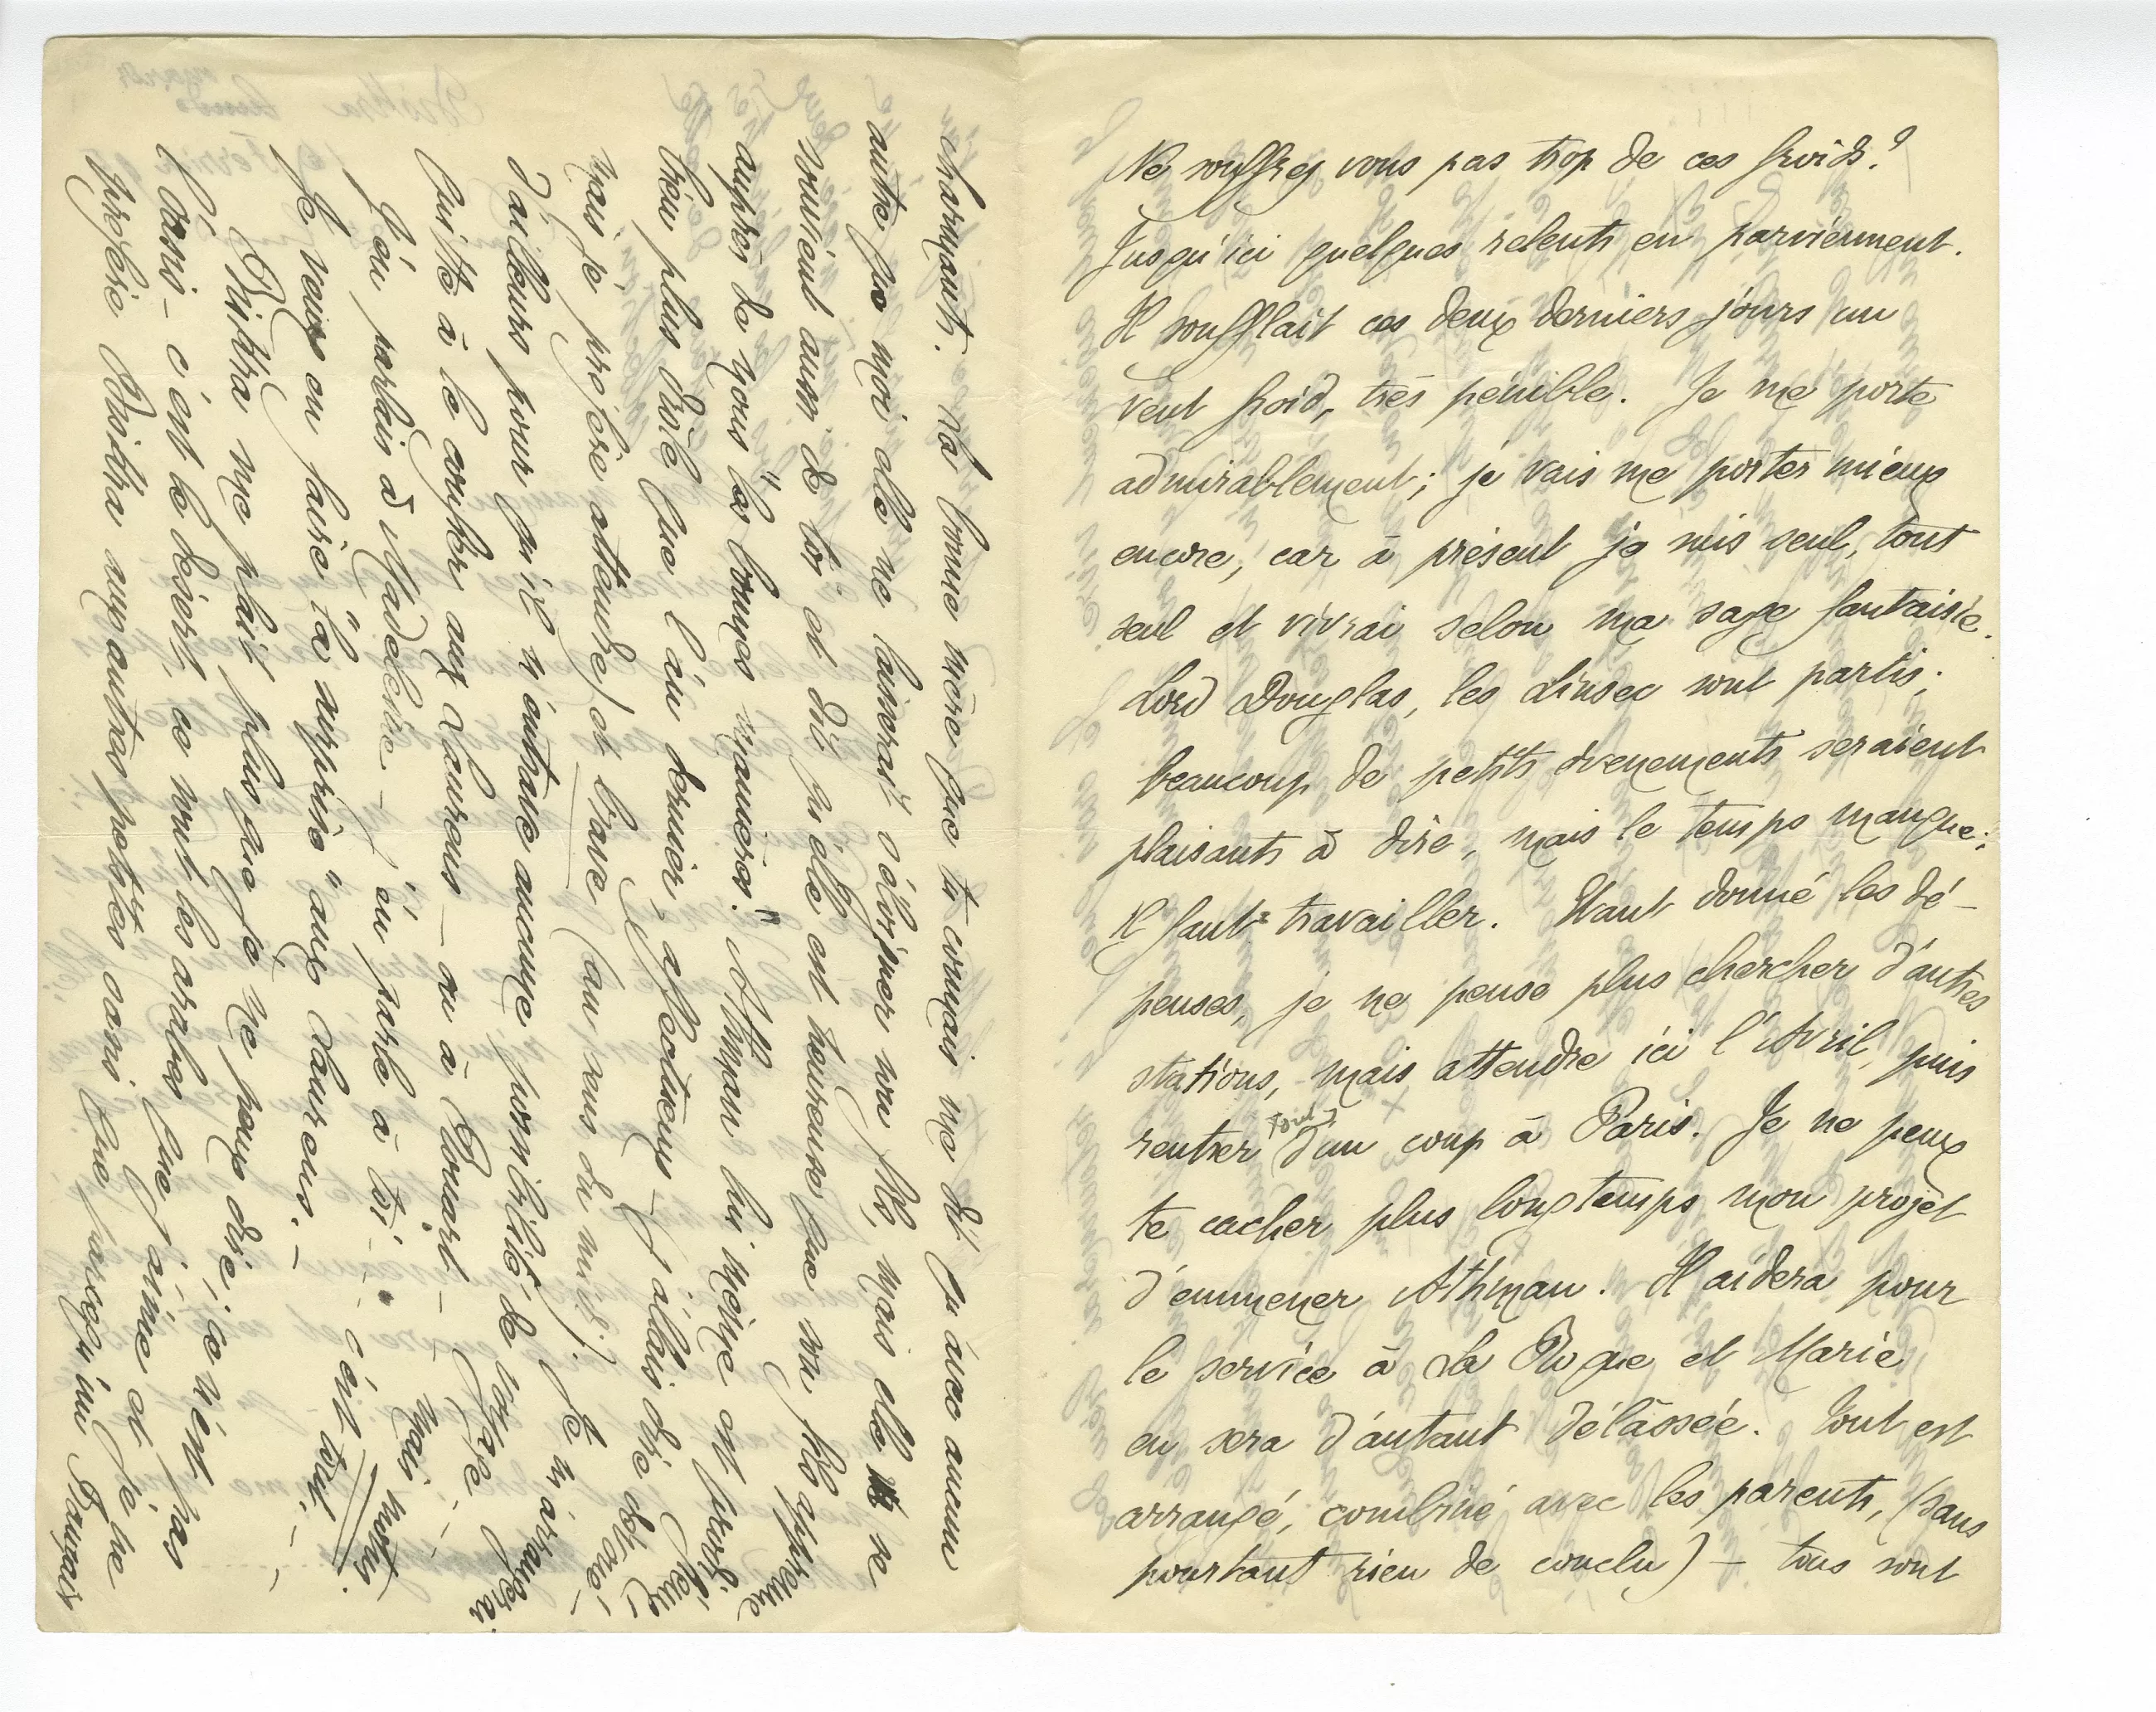 Ne souffrez vous pas trop de ces froids?
Jusqu'ici quelques relents en parviennent.
Il soufflait ces deux derniers jours un
vent froid, très pénible. Je me porte
admirablement; je vais me porter mieux
encore, car à présent je suis seul, tout
seul et vivrai selon ma sage fantaisie.
Lord Douglas, les sont partis;
beaucoup de petits évenements seraient
plaisants à dire, mais le temps manque;
Il faut travailler. Etant donné les dé-
penses, je ne pense plus chercher d'autres
stations, mais attendre ici l'Avril, puis
rentrer tout d'un coup à Paris. Je ne peux
te cacher plus longtemps mon projet
d'emmener Athman. Il aidera pour
le service à La Roque et Marie
en sera d'autant délassée. Tout est
arrangé, combiné avec les parents, (sans
pourtant rien de conclu) – tous sont
charmants. Sa bonne mère que tu connais me dit qu'avec aucun
autre que moi elle ne laisserait s'éloigner son fils, mais elle se
souvient aussi de toi et dit qu'elle est heureuse que son fils apprenne
auprès de nous "les bonnes manières." Athman lui même est
bien plus drôle que l'an dernier, affectueux – j'allais dire dévoué –
mais je préfère attendre) et brave (au sens du midi). Je m'arrangerai
d'ailleurs pour qu'il n'entrave aucune possibilité de voyage –
quitte à le confier aux Laurens – ou à Rouart –
J'en parlais à Madeleine – j'en parle à toi – c'est tout. –
mais motus.
Je veux en faire "la surprise" aux Laurens. –
Biskra me plait plus que je ne peux dire; ce n'est pas
l'oasis – c'est le désert, ce sont les arabes que j'aime et je ne
préfère Biskra aux autres petites oasis que parce qu'un Français